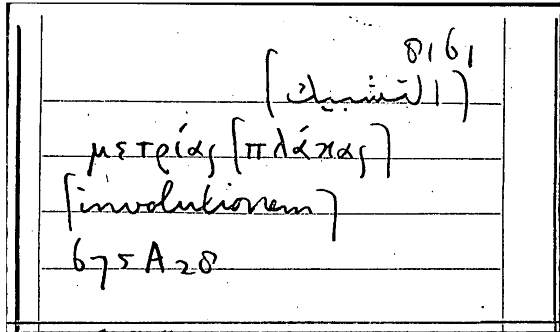 8161
[التشبيك]
μετρίας [πλάκας]
[involutionem]
675A28